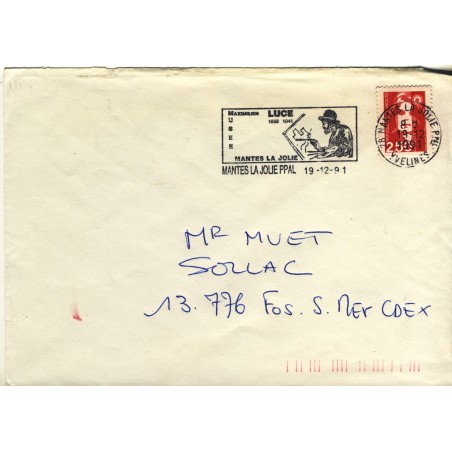 MAXIMILIEN LUCE
1858 1941
MUSEE
MANTES LA JOLIE
MANTES LA JOLIE PPAL 19-12-91
78 MANTES LA JOLIE PPAL
19-12
1991
YVELINES
MR MUET
SOLLAC
13.776 FOS. S. MER CDEX